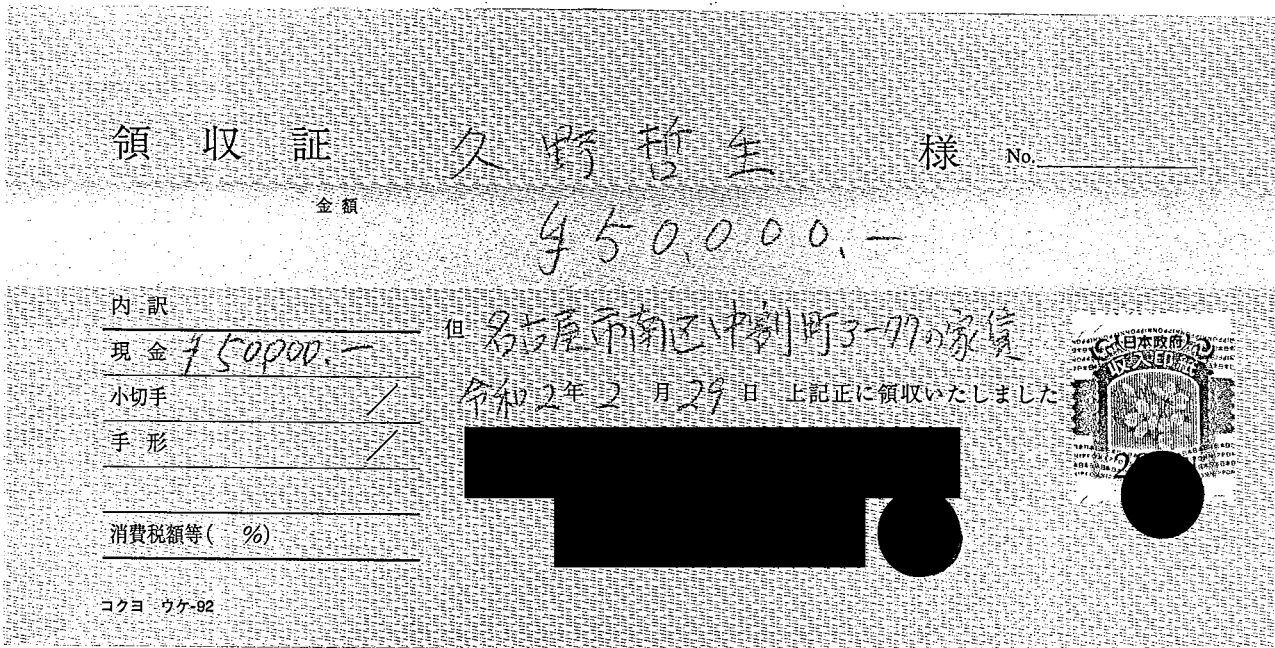 領収証 久野哲生 様 No.
金額
¥50,000.-
内訳
現金 ¥50000.-
小切手 /
手形 /
消費税額等( %)
但 名古屋市南区中割町3-77の家賃
令和2年2月29日 上記正に領収いたしました
日本政府
収入印紙
コクヨ ウケ-92